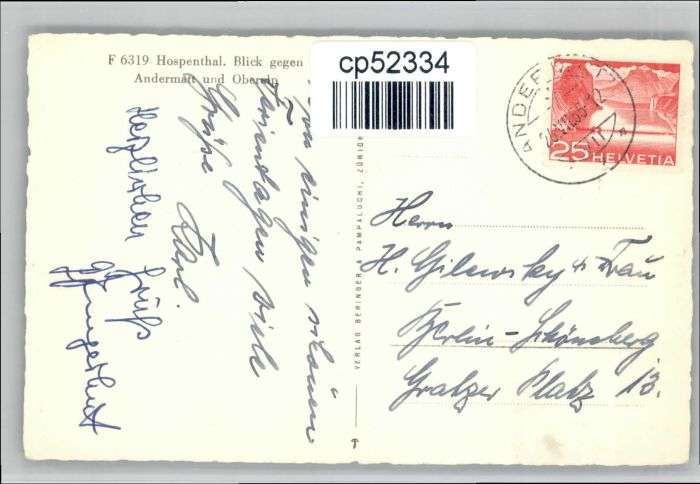 F 6319 Hospenthal. Blick gegen
Andermatt und Oberalp
cp52334
25 HELVETIA
einigen schönen
Ferientagen viele
Grüße
Karl.
Herzlichen Gruß
VERLAG BERINGER & PAMPALUCHI, ZÜRICH
Herrn
H. Gilewsky & Frau
Berlin-Schöneberg
Gratzer Platz 13.